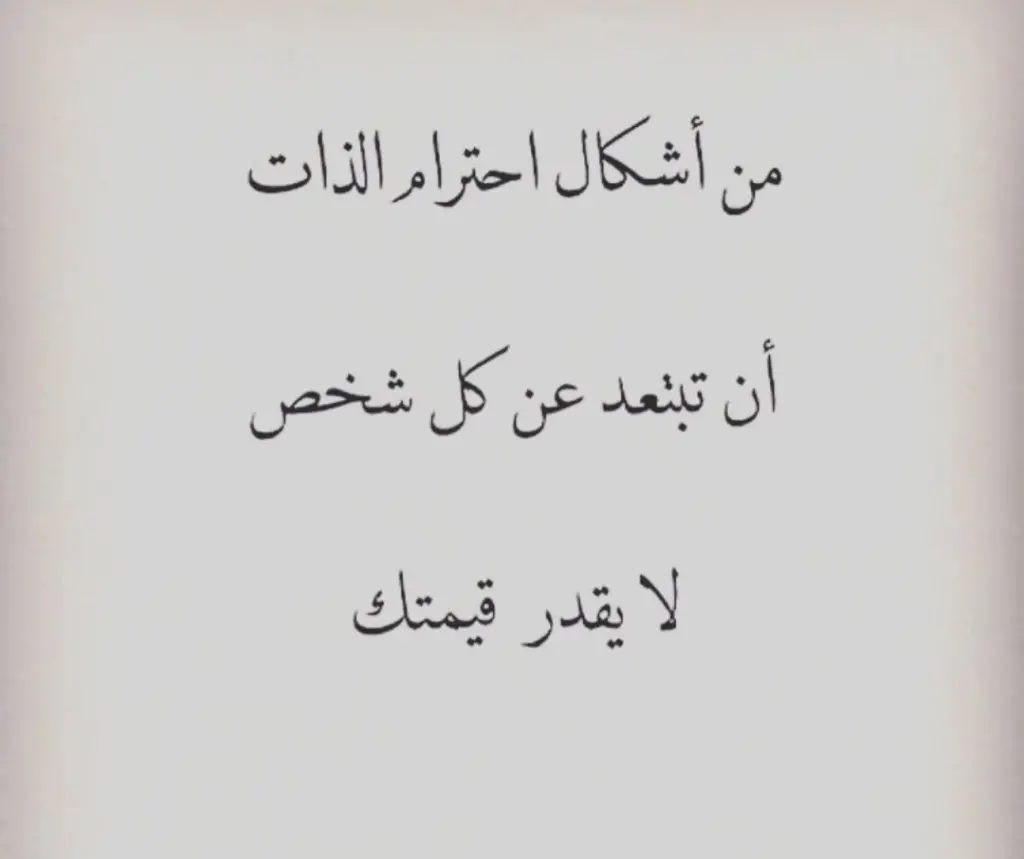 من أشكال احترام الذات
أن تبتعد عن كل شخص
لا يقدر قيمتك